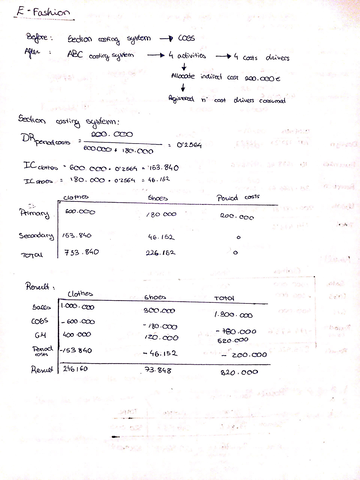 E-Fashion
Before: Section costing system → COGS
After: ABC costing system → 4 activities → 4 costs drivers
Allocate indirect cost 200.000 €
Registered nº cost drivers consumed
Section costing system:
DR period costs = 200.000 / 600.000 + 180.000 = 0'2564
IC clothes = 600.000 * 0'2564 = 153.840
IC shoes = 180.000 * 0'2564 = 46.152
Clothes Shoes Period costs
Primary 600.000 180.000 200.000
Secondary 153.840 46.152 0
Total 753.840 226.152 0
Result:
Clothes Shoes Total
Sales 1.000.000 300.000 1.300.000
COGS -600.000 -180.000 -780.000
GM 400.000 120.000 520.000
Period costs -153.840 -46.152 -200.000
Result 246.160 73.848 320.000